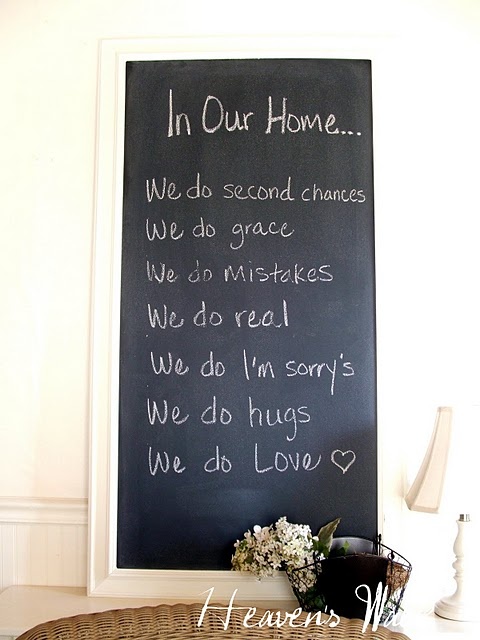 In Our Home...
We do second chances
We do grace
We do mistakes
We do real
We do I'm sorry's
We do hugs
We do Love ♡
Heaven's